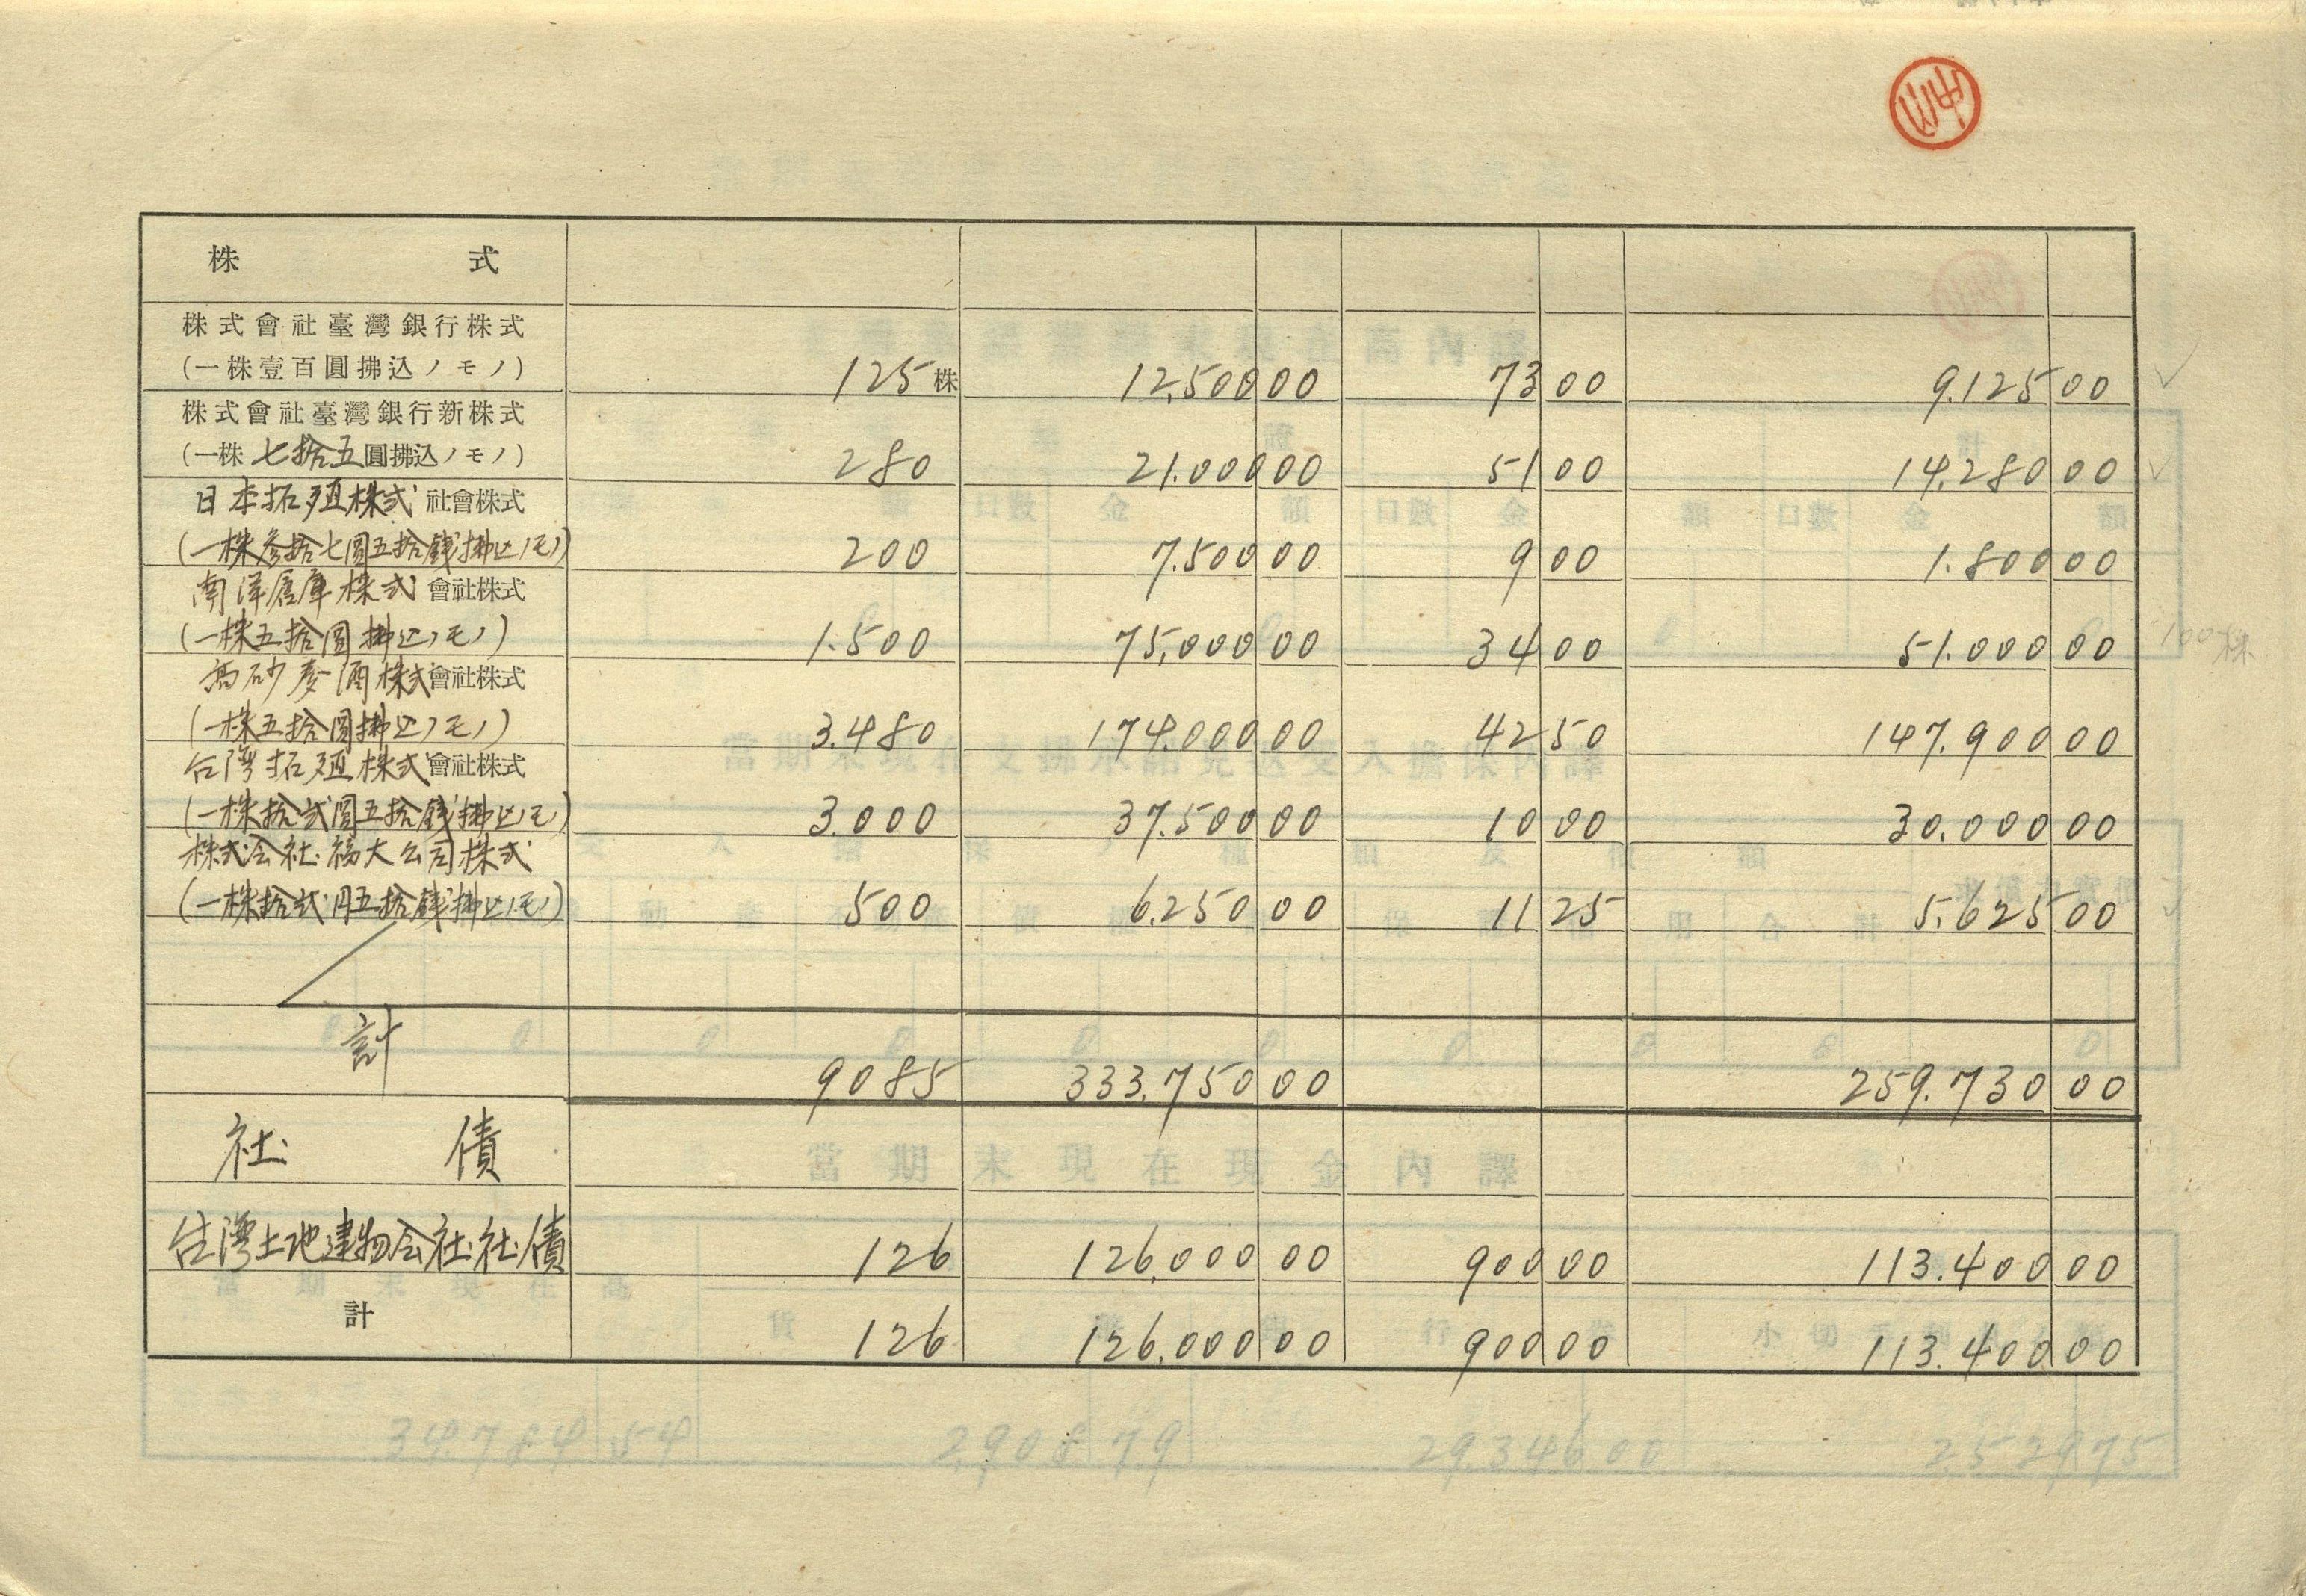 株 式
株式會社臺灣銀行株式
(一株壹百圓拂込ノモノ) 125株 12,500 00 73 00 9.125 00
株式會社臺灣銀行新株式
(一株七拾五圓拂込ノモノ) 280 21.000 00 51 00 14.280 00
日本拓殖株式社會株式
(一株參拾七圓五拾錢拂込ノモノ) 200 7.500 00 9 00 1.800 00
南洋倉庫株式會社株式
(一株五拾圓拂込ノモノ) 1.500 75,000 00 34 00 51.000 00 100株
高砂麦酒株式會社株式
(一株五拾圓拂込ノモノ) 3.480 174.000 00 42 50 147.900 00
台湾拓殖株式會社株式
(一株拾弍圓五拾錢拂込ノモノ) 3.000 37.500 00 10 00 30.000 00
株式会社福大公司株式
(一株拾弍円五拾錢拂込ノモノ) 500 6.250 00 11 25 5.625 00
計 9085 333.750 00 259.730 00
社 債
台湾土地建物会社社債 126 126.000 00 900 00 113.400 00
計 126 126.000 00 900 00 113.400 00